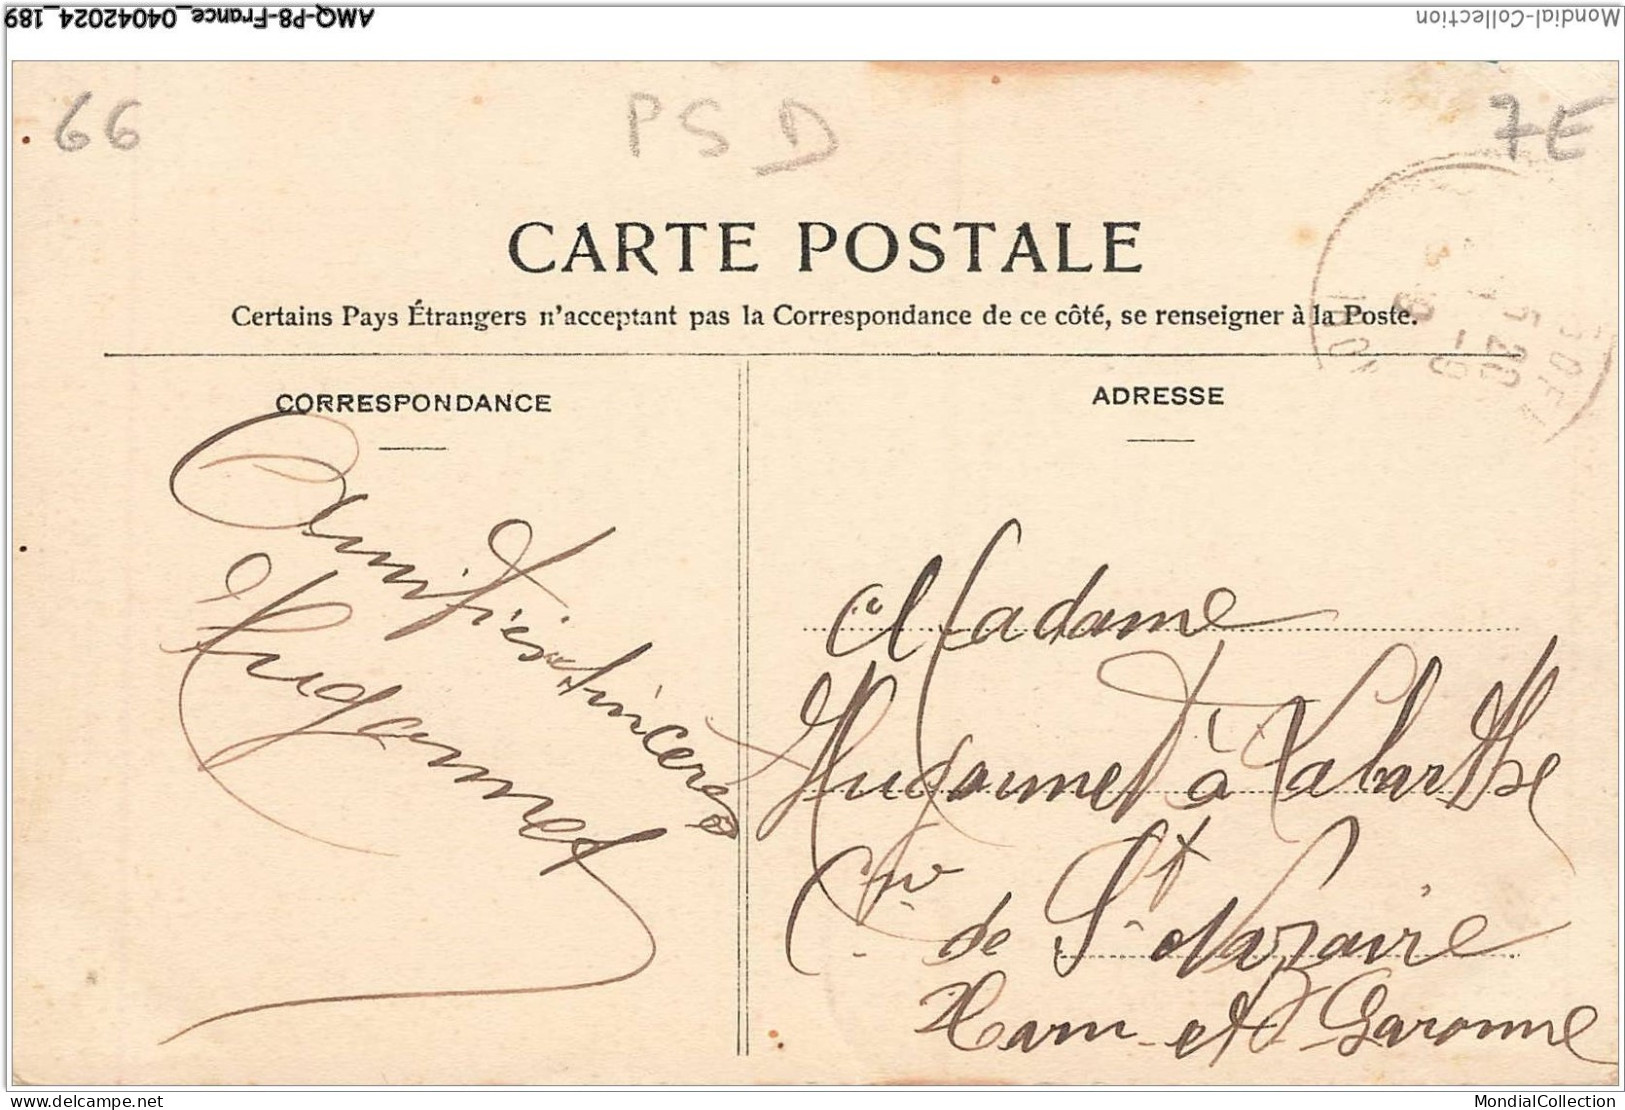 AMQ-P8-France_04042024_189
Mondial-Collection
66
PSD
7E
CARTE POSTALE
Certains Pays Étrangers n'acceptant pas la Correspondance de ce côté, se renseigner à la Poste.
CORRESPONDANCE
Amitiés sincères
Hugonnet
ADRESSE
Madame
Hugonnet à Labarthe
Cne
de St Nazaire
Tarn-et-Garonne
delcampe.net
MondialCollection